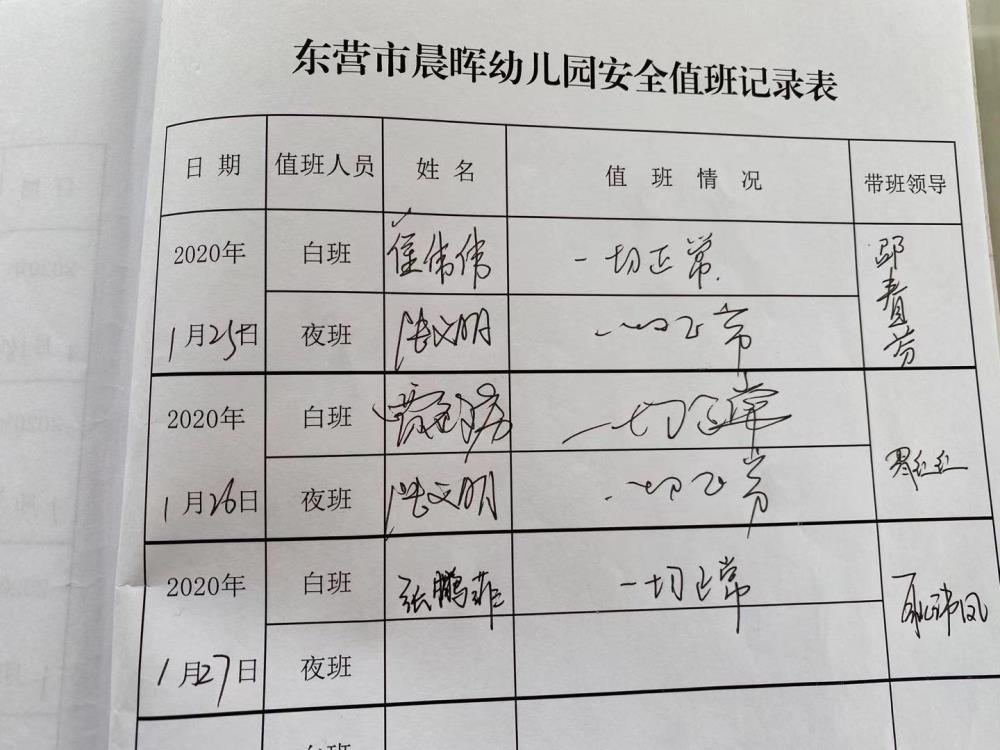 东营市晨晖幼儿园安全值班记录表
日期 值班人员 姓名 值班情况 带班领导
2020年 白班 崔伟伟 一切正常.
1月25日 夜班 张文明 一切正常 邱春芳
2020年 白班 一切正常
1月26日 夜班 张文明 一切正常 红红
2020年 白班 张鹏菲 一切正常
1月27日 夜班
白班